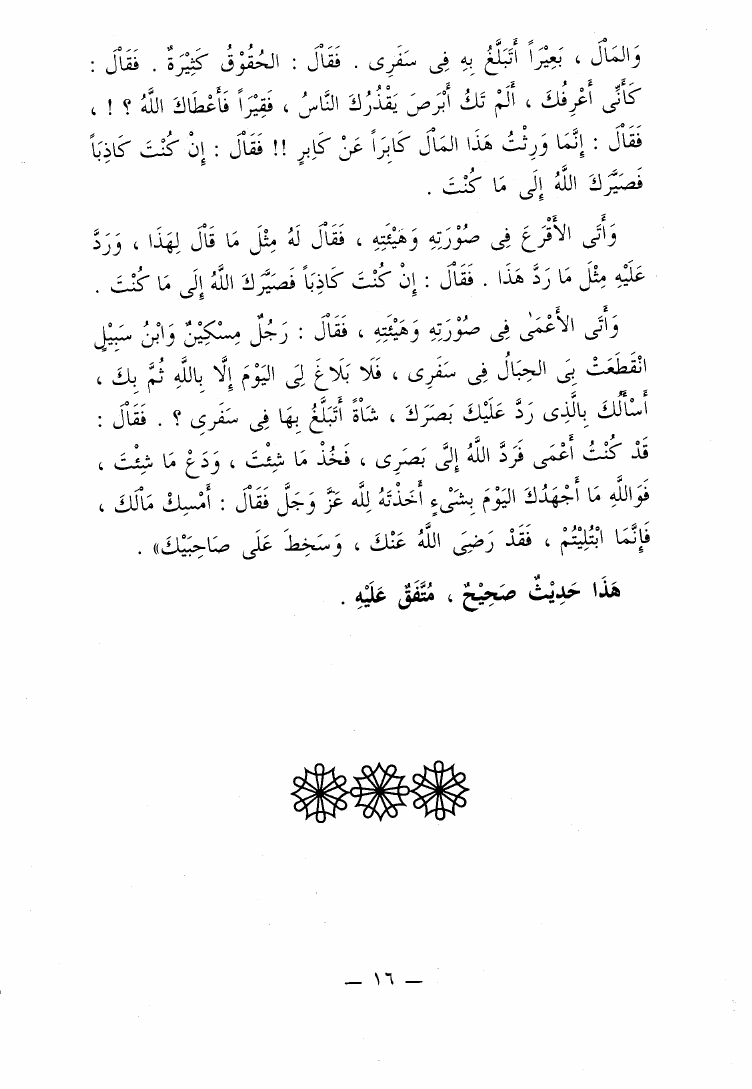 وَالمَالَ ، بَعِيْرَاً أَتَبَلَّغُ بِهِ فِى سَفَرِى . فَقَالَ : الحُقُوْقُ كَثِيْرَةٌ . فَقَالَ :
كَأَنِّى أَعْرِفُكَ ، أَلَمْ تَكُ أَبْرَصَ يَقْذُرُكَ النَّاسُ ، فَقِيْرَاً فَأَعْطَاكَ اللَّهُ ؟ ! ،
فَقَالَ : إِنَّمَا وَرِثْتُ هَذَا المَالَ كَابِرَاً عَنْ كَابِرٍ !! فَقَالَ : إِنْ كُنْتَ كَاذِبَاً
فَصَيَّرَكَ اللَّهُ إِلَى مَا كُنْتَ .
وَأَتَى الأَقْرَعَ فِى صُوْرَتِهِ وَهَيْئَتِهِ ، فَقَالَ لَهُ مِثْلَ مَا قَالَ لِهَذَا ، وَرَدَّ
عَلَيْهِ مِثْلَ مَا رَدَّ هَذَا . فَقَالَ : إِنْ كُنْتَ كَاذِبَاً فَصَيَّرَكَ اللَّهُ إِلَى مَا كُنْتَ .
وَأَتَى الأَعْمَى فِى صُوْرَتِهِ وَهَيْئَتِهِ ، فَقَالَ : رَجُلٌ مِسْكِيْنٌ وَابْنُ سَبِيْلٍ
انْقَطَعَتْ بِىَ الحِبَالُ فِى سَفَرِى ، فَلَا بَلَاغَ لِىَ اليَوْمَ إِلَّا بِاللَّهِ ثُمَّ بِكَ ،
أَسْأَلُكَ بِالَّذِى رَدَّ عَلَيْكَ بَصَرَكَ ، شَاةً أَتَبَلَّغُ بِهَا فِى سَفَرِى ؟ . فَقَالَ :
قَدْ كُنْتُ أَعْمَى فَرَدَّ اللَّهُ إِلَىَّ بَصَرِى ، فَخُذْ مَا شِئْتَ ، وَدَعْ مَا شِئْتَ ،
فَوَاللَّهِ مَا أَجْهَدُكَ اليَوْمَ بِشَىْءٍ أَخَذْتَهُ لِلَّه عَزَّ وَجَلَّ فَقَالَ : أَمْسِكْ مَالَكَ ،
فَإِنَّمَا ابْتُلِيْتُمْ ، فَقَدْ رَضِىَ اللَّهُ عَنْكَ ، وَسَخِطَ عَلَى صَاحِبَيْكَ» .
هَذَا حَدِيْثٌ صَحِيْحٌ ، مُتَّفَقٌ عَلَيْهِ .
— ١٦ —